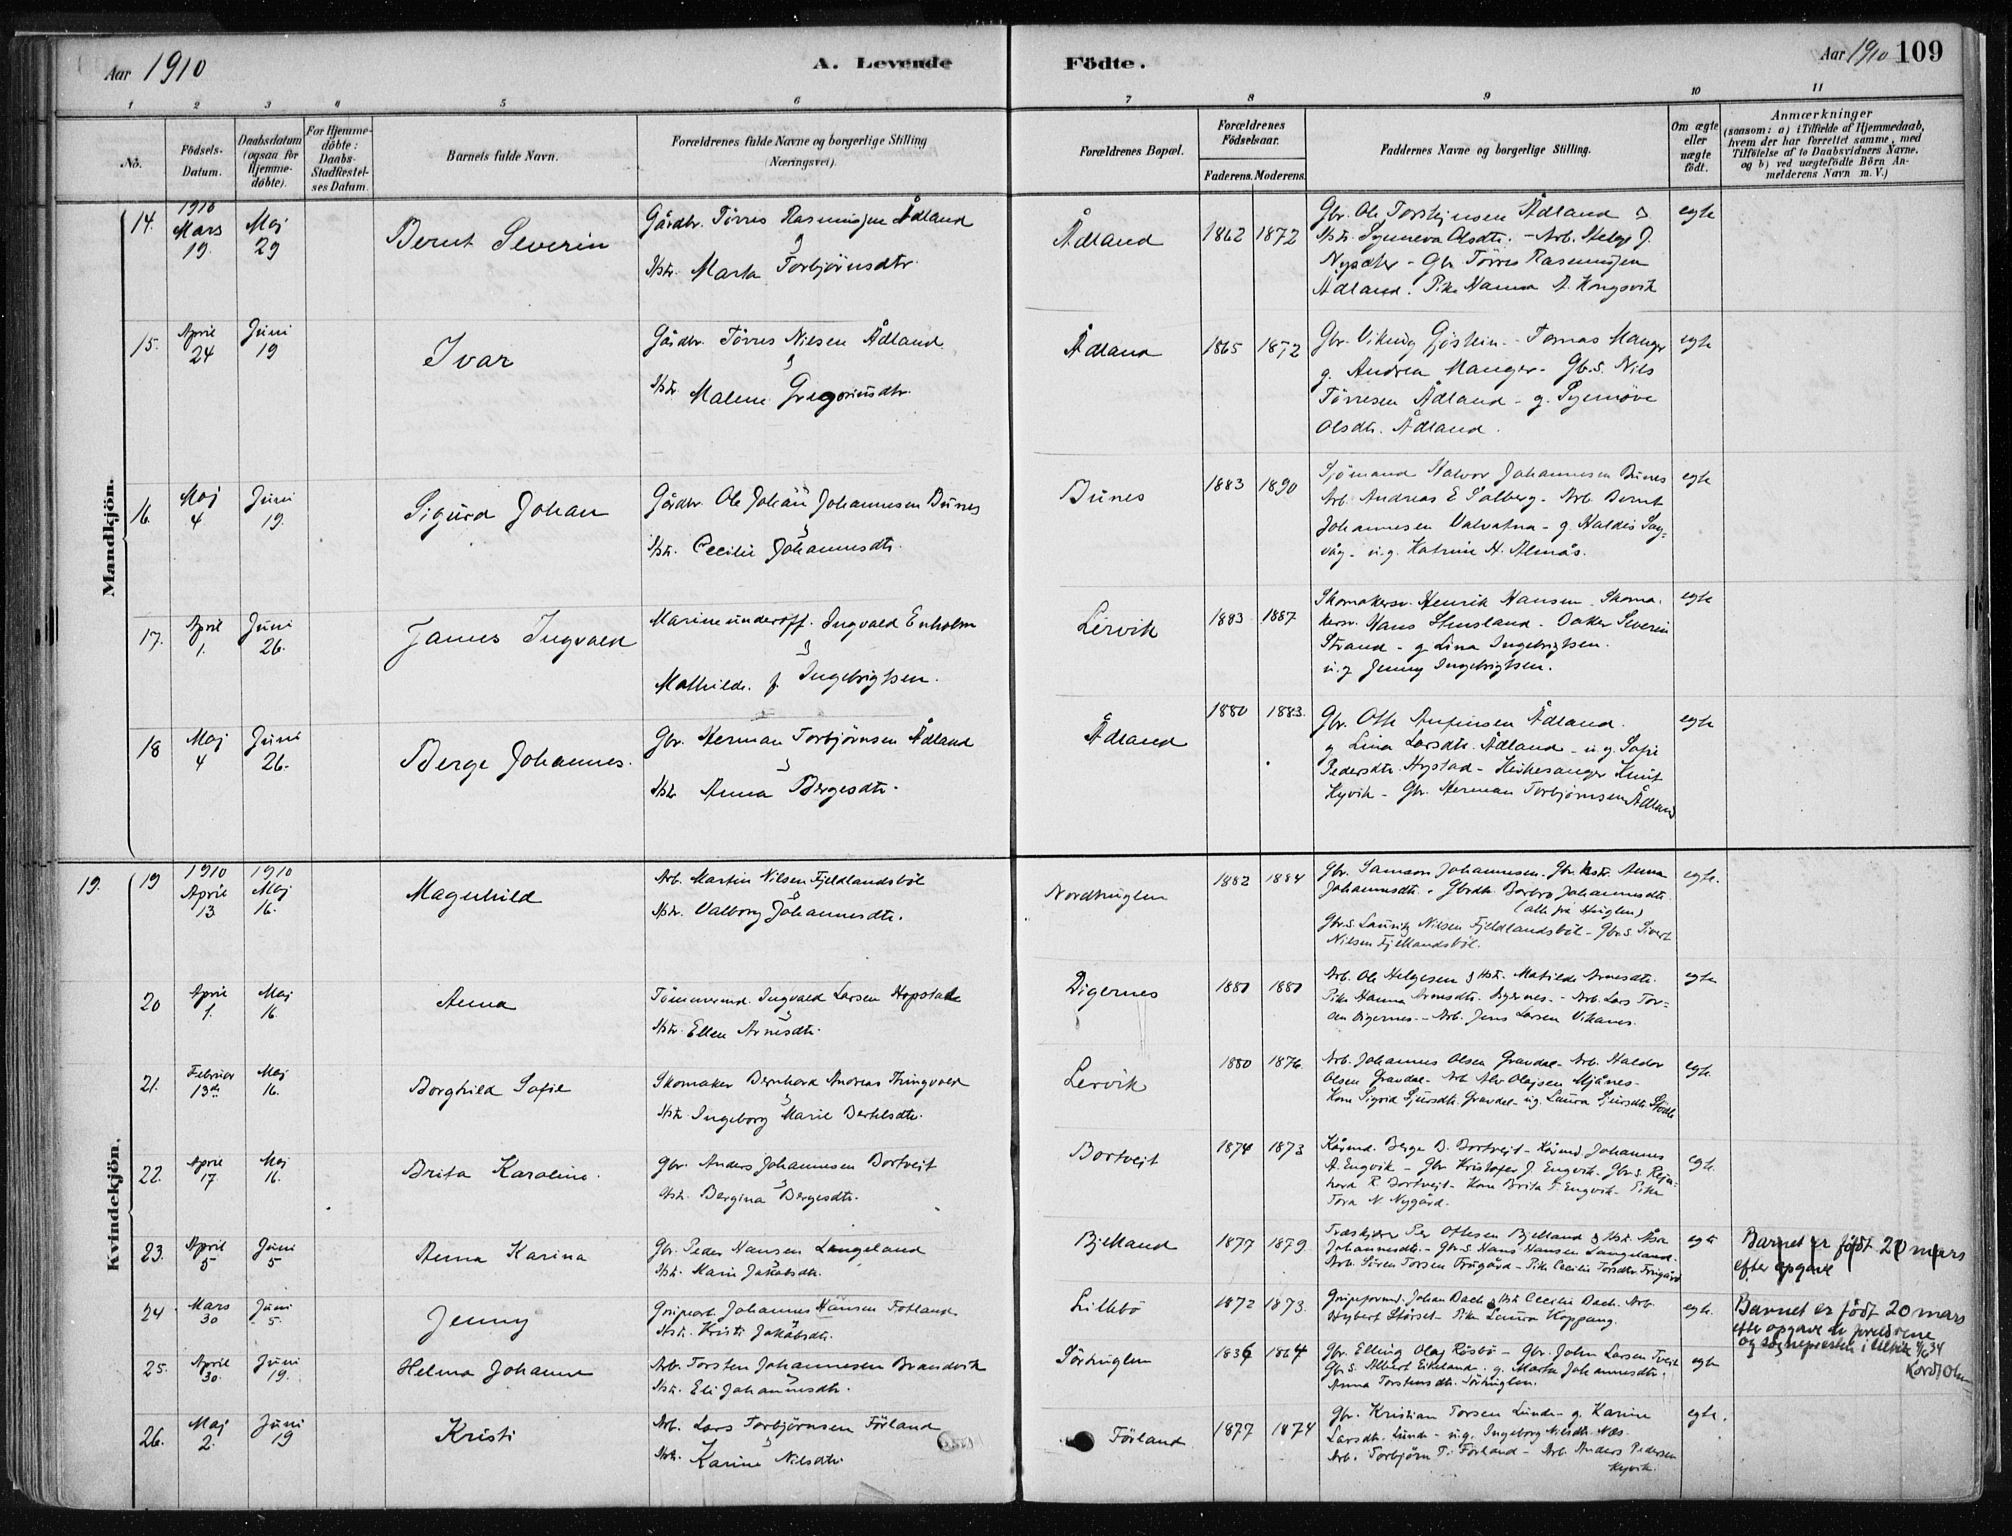 Aar 1910
A. Levende
Födte.
Aar 1910 109
1 2 3 4 5 6 7 8 9 10 11
No.
Födsels-
Datum.
Daabsdatum
(ogsaa for
Hjemme-
döbte).
For Hjemme-
döbte:
Daabs-
Stadfæstel-
ses Datum.
Barnets fulde Navn.
Forældrenes fulde Navne og borgerlige Stilling
(Næringsvei).
Forældrenes Bopæl.
Forældrenes
Födselsaar.
Faderens. Moderens.
Faddernes Navne og borgerlige Stilling.
Om ægte
eller
uægte
födt.
Anmærkninger
(saasom: a) i Tilfælde af Hjemmedaab,
hvem der har forrettet samme, med
Tilföielse af to Daabsvidners Navne.
og b) ved uægtefödte Börn An-
melderens Navn m. V.)
Mandkjön.
14.
1910
Mars
19.
Maj
29
Bernt Severin
Gårdbr. Törres Rasmussen Ådland
&
Hstr. Marta Torbjörnsdtr.
Ådland
1862 1872
Gbr. Ole Torstejnsen Ådland &
Hstr. Synneva Olsdtr. - Arb. Helge J.
Nysæter - Gbr Törres Rasmussen
Ådland. Pike Hanna A. Kongsvik
egte
15.
April
24
Juni
19
Ivar
Gårdbr. Törres Nilsen Ådland
&
Hstr Malene Gregoriusdtr.
Ådland
1865 1872
Gbr. Viking Gjöstein - Tomas Manger
g. Andrea Manger - Gb.s. Nils
Törresen Ådland - g. Synnöve
Olsdtr. Ådland.
egte
16.
Maj
4
Juni
19.
Sigurd Johan
Gårdbr. Ole Johan Johannesen Bunes
&
Hstr. Cecilie Johannesdtr.
Bunes
1883 1890
Sjömand Halvor Johannesen Bunes
Arb. Andreas E Solberg - Arb. Bernt
Johannesen Valvatna - g. Haldis Sag-
våg - u.g. Katrine H. Almås.
egte
17.
April
1.
Juni
26.
James Ingvald
Marineunderoff. Ingvald Enholm
&
Mathilde f. Ingebrigtsen.
Lervik
1883 1887
Skomakersv. Henrik Hansen. Skoma-
kersv. Hans Stensland - Baker Severin
Strand - g Lina Ingebrigtsen.
u.g Jenny Ingebrigtsen.
egte
18
Maj
4
Juni
26.
Berge Johannes.
Gbr. Herman Torbjörnsen Ådland
&
Hstr Anna Bergesdtr.
Ådland
1880 1883.
Gbr. Otte Anfinsen Ådland.
g Lina Larsdtr. Ådland - u.g. Sofie
Pedersdtr. Hystad - Kirkesanger Knut
Kyvik - Gbr. Herman Torbjörnsen Ådland
egte
Kvindekjön.
19.
19
1910
April
13
1910
Maj
16.
Magnhild
Arb. Martin Nilsen Fjeldlandsböl
&
Hstr. Valborg Johannesdtr.
Nordhuglen
1882 1884
Gbr. Samson Johannesen. Gbr. hstr. Anna
Johannesdtr. Gbrdtr. Barbro Johannesdtr.
(alle fra Huglen)
Gbr.s. Lauritz Nilsen Fjeldlandsböl - Gbr.s. Sivert
Nilsen Fjellandsböl.
egte.
20
April
1.
Maj
16.
Anna
Tömmermd. Ingvald Larsen Hopstade
&
Hstr. Ellen Arnesdtr.
Digernes
1880 1880
Arb. Ole Helgesen & Hst. Matilde Arnesdtr.
Pike Hanna Arnesdtr. Digernes. - Arb. Lars Tor-
Digernes. - Arb. Jens Larsen Vikanes.
egte
21.
Februar
13de
Maj
16.
Borghild Sofie
Skomaker Bernhard Andreas Tringvold
&
Hstr. Ingeborg Marie Bertelsdtr.
Lervik
1880 1876.
Arb. Johannes Olsen Gravdal - Arb. Haldor
Olsen Gravdal - Arb Alv Olajsen Mjånes -
Kone Sigrid Sjursdtr. Gravdal - ug. Laura Sjursdtr. Stödle
egte.
22.
April
17.
Maj
16.
Brita Karoline.
Gbr. Anders Johannesen Bortvejt
&
Hstr. Bergina Bergesdtr.
Bortvejt
1874 1873
Kårmd. Berge B. Bortvejt - Kårmd. Johannes
A. Engvik - Gbr Kristofer J. Engvik. Gbr.s. Rejn-
hard R. Bortvejt - Kone Brita T. Engvik - Pike
Tora N Nygård.
egte.
23.
April
5
Juni
5
Anna Karina
Gbr. Peder Hansen Langeland
Hst. Marie Jakobsdtr.
Bjelland
1877 1879.
Træskjær Per Ottesen Bjelland & Hst Åsa
Johannesdtr. - Gbr.s Hans Hansen Langeland
Arb. Sören Torsen Frugård - Pike Cecilie Torsdtr Frugård
egte
Barnet er född 20 mars
efter opgave
24.
Mars
30
Juni
5.
Jenny
Grubearb. Johannes Hansen Fotland
&
Hst. Kristi Jakobsdtr.
Lillebö
1872 1873.
Grubeformd. Johan Bach & Hst Cecilie Bach. Arb.
Hybert Störset - Pike Laura Koppang.
egte.
Barnet er född 20 mars
efter opgave av foreldrene
og sogneprestens i 6/6 34
25.
April
30.
Juni
19.
Helena Johanne
Arb. Torsten Johannesen Brandvik
&
Hst. Eli Johannesdtr.
Sörhuglen
1864
Gbr. Elling Olaj Rösbö - Gbr. John Larsen Tvejt
Gbr.s. Albert Eikeland. g. Marta Johannesdtr.
Anna Torstensdtr. Sörhuglen.
egte
26.
Maj
2.
Juni
19
Kristi
Arb. Lars Torbjörnsen Förland
&
Hstr. Karine Nilsdtr.
Förland
1877 1874
Gbr. Kristian Torsen Lunde - g. Karine
Larsdtr. Lunde - u.g. Ingeborg Nilsdtr. Næs.
Arb. Torbjörn T. Förland - Arb. Anders Pedersen
Kyvik.
egte.